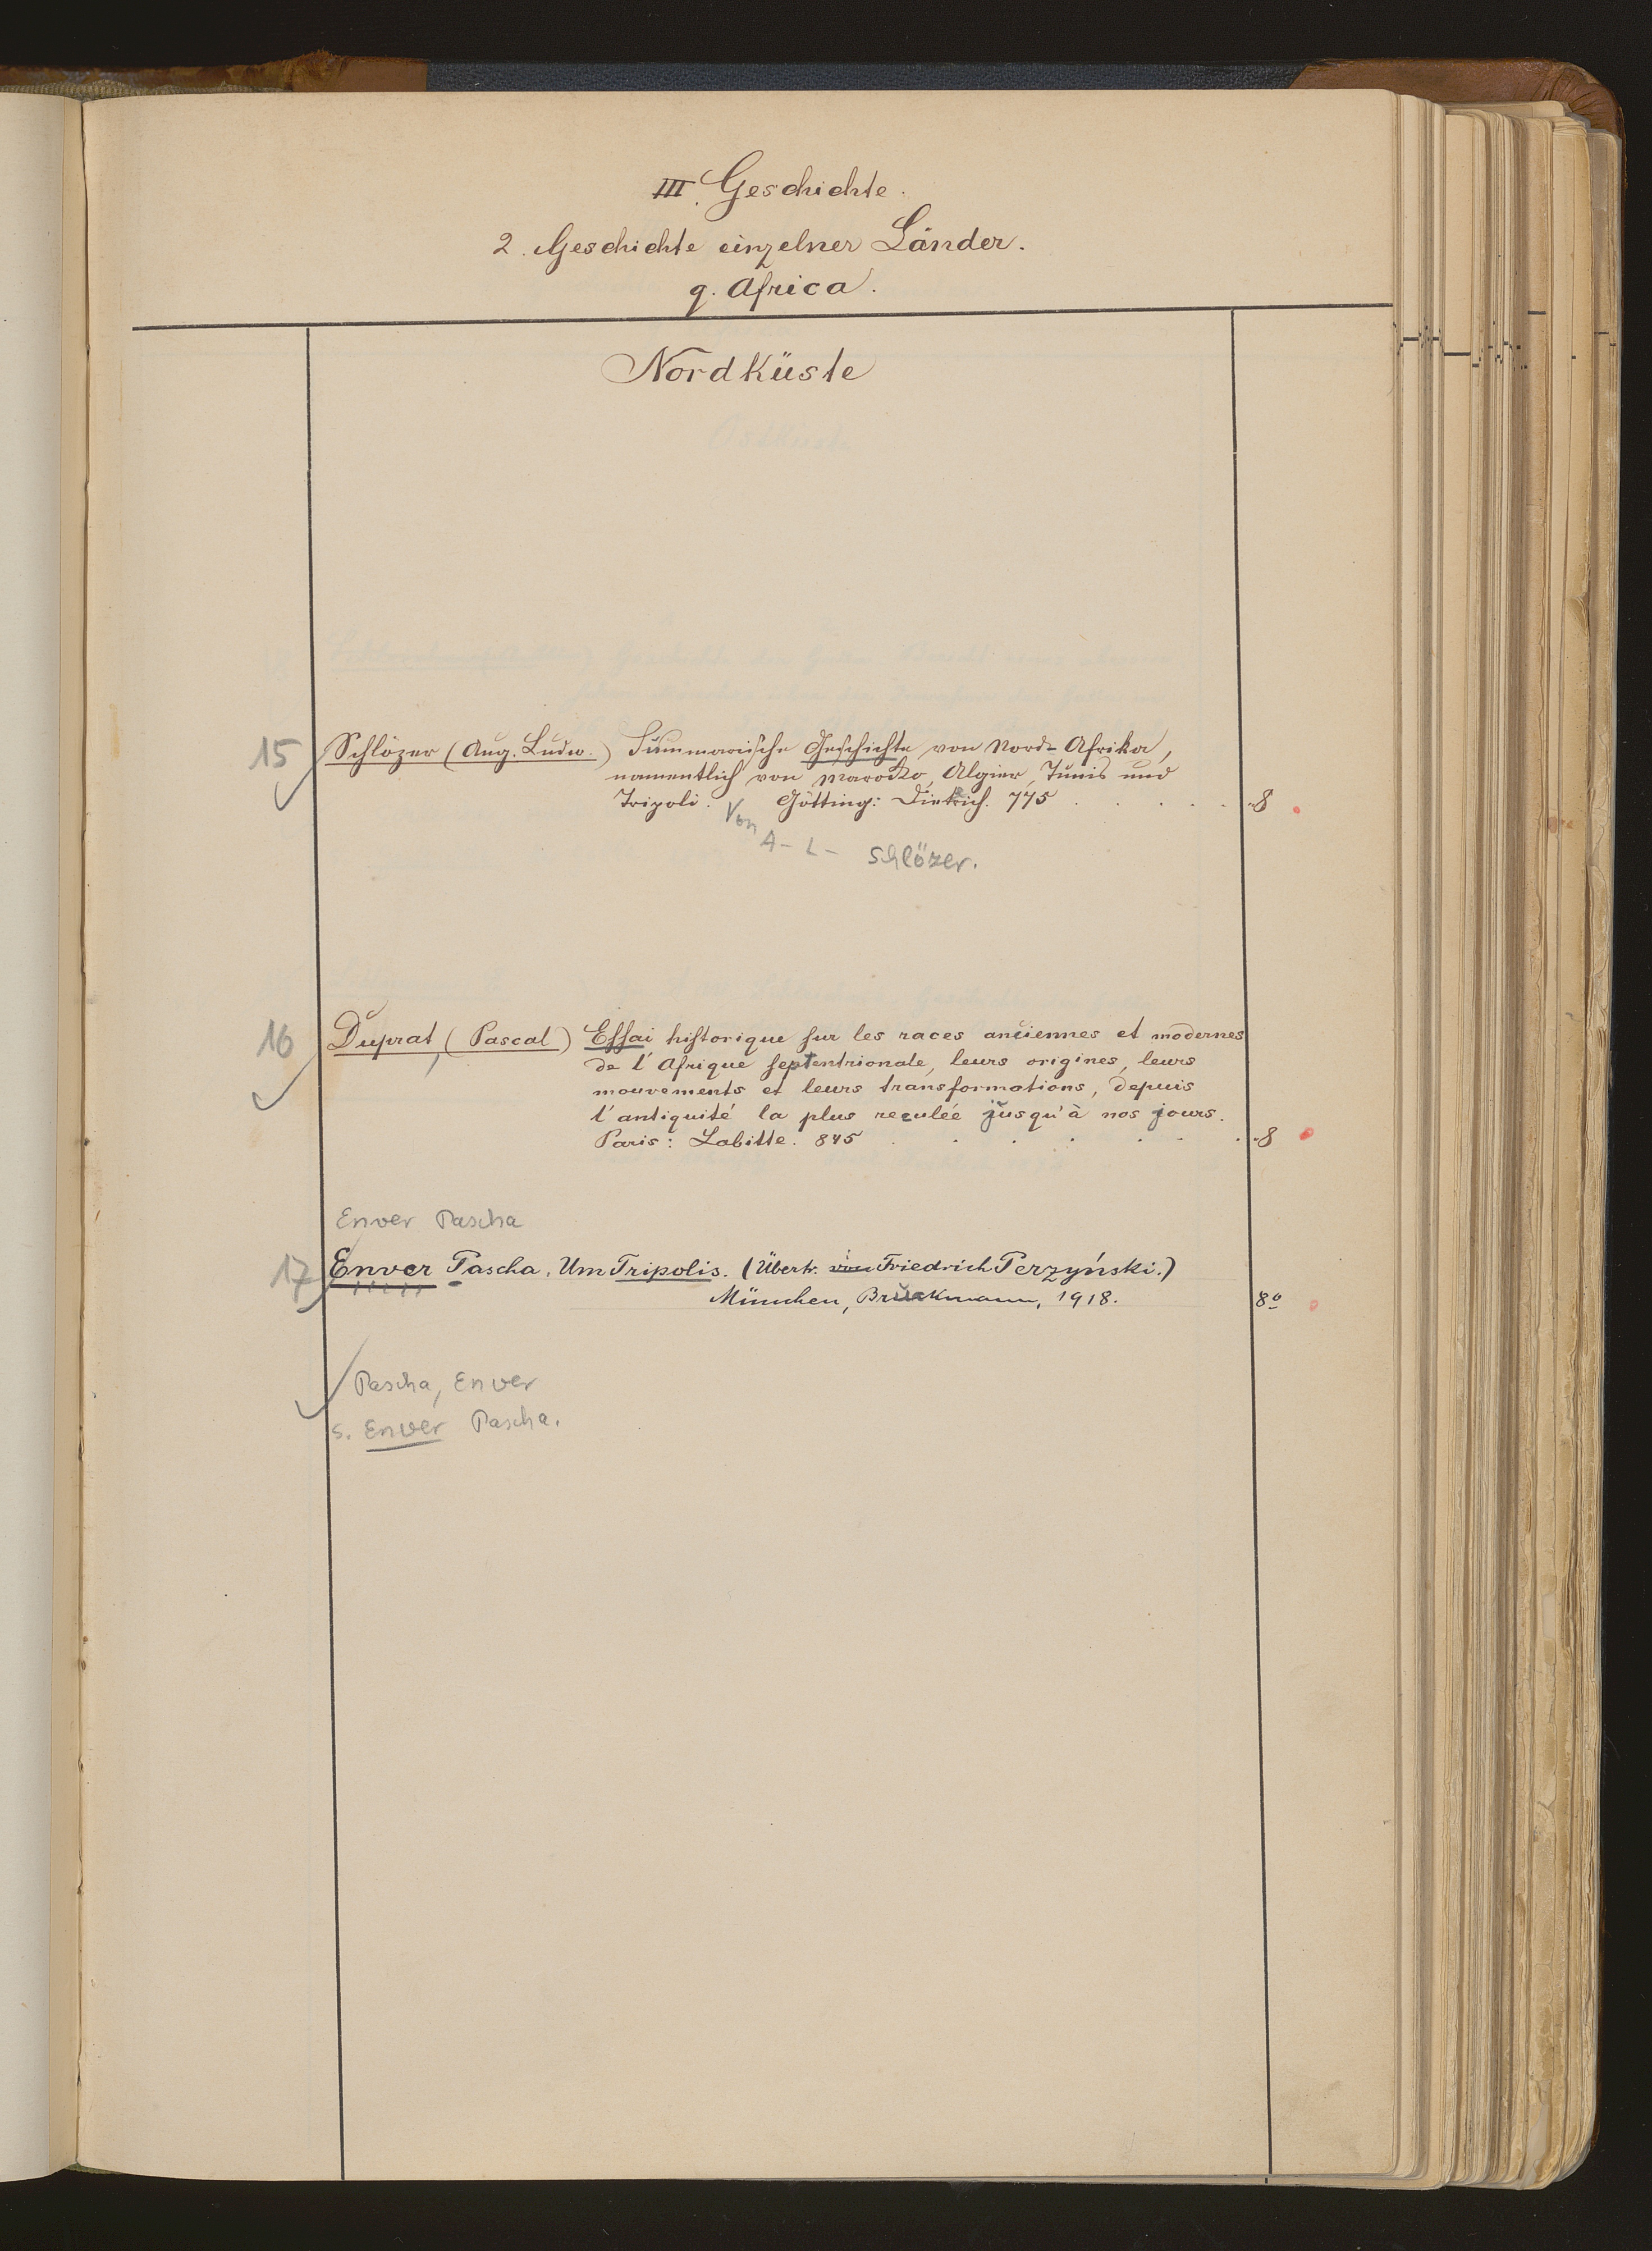 III. Geschichte.
2. Geschichte einzelner Länder.
q. Africa.
Nordküste
15 Schlözer (Aug. Ludw.) Summarische Geschichte von Nord-Afrika,
namentlich von Marocko, Algier, Tunis und
Tripoli. Götting: Dietrich. 775 . . . . 8
Von A- L- Schlözer.
16 Duprat, (Pascal) Essai historique sur les races anciennes et modernes
de l'Afrique septentrionale, leurs origines, leurs
mouvements et leurs transformations, depuis
l'antiquité la plus reculée jusqu'à nos jours.
Paris: Labitte. 845 . . . . . . 8
Enver Pascha
17 Enver Pascha, Um Tripolis. (Übertr. von Friedrich Perzyński.)
München, Bruckmann, 1918. 8º
Pascha, Enver
s. Enver Pascha.